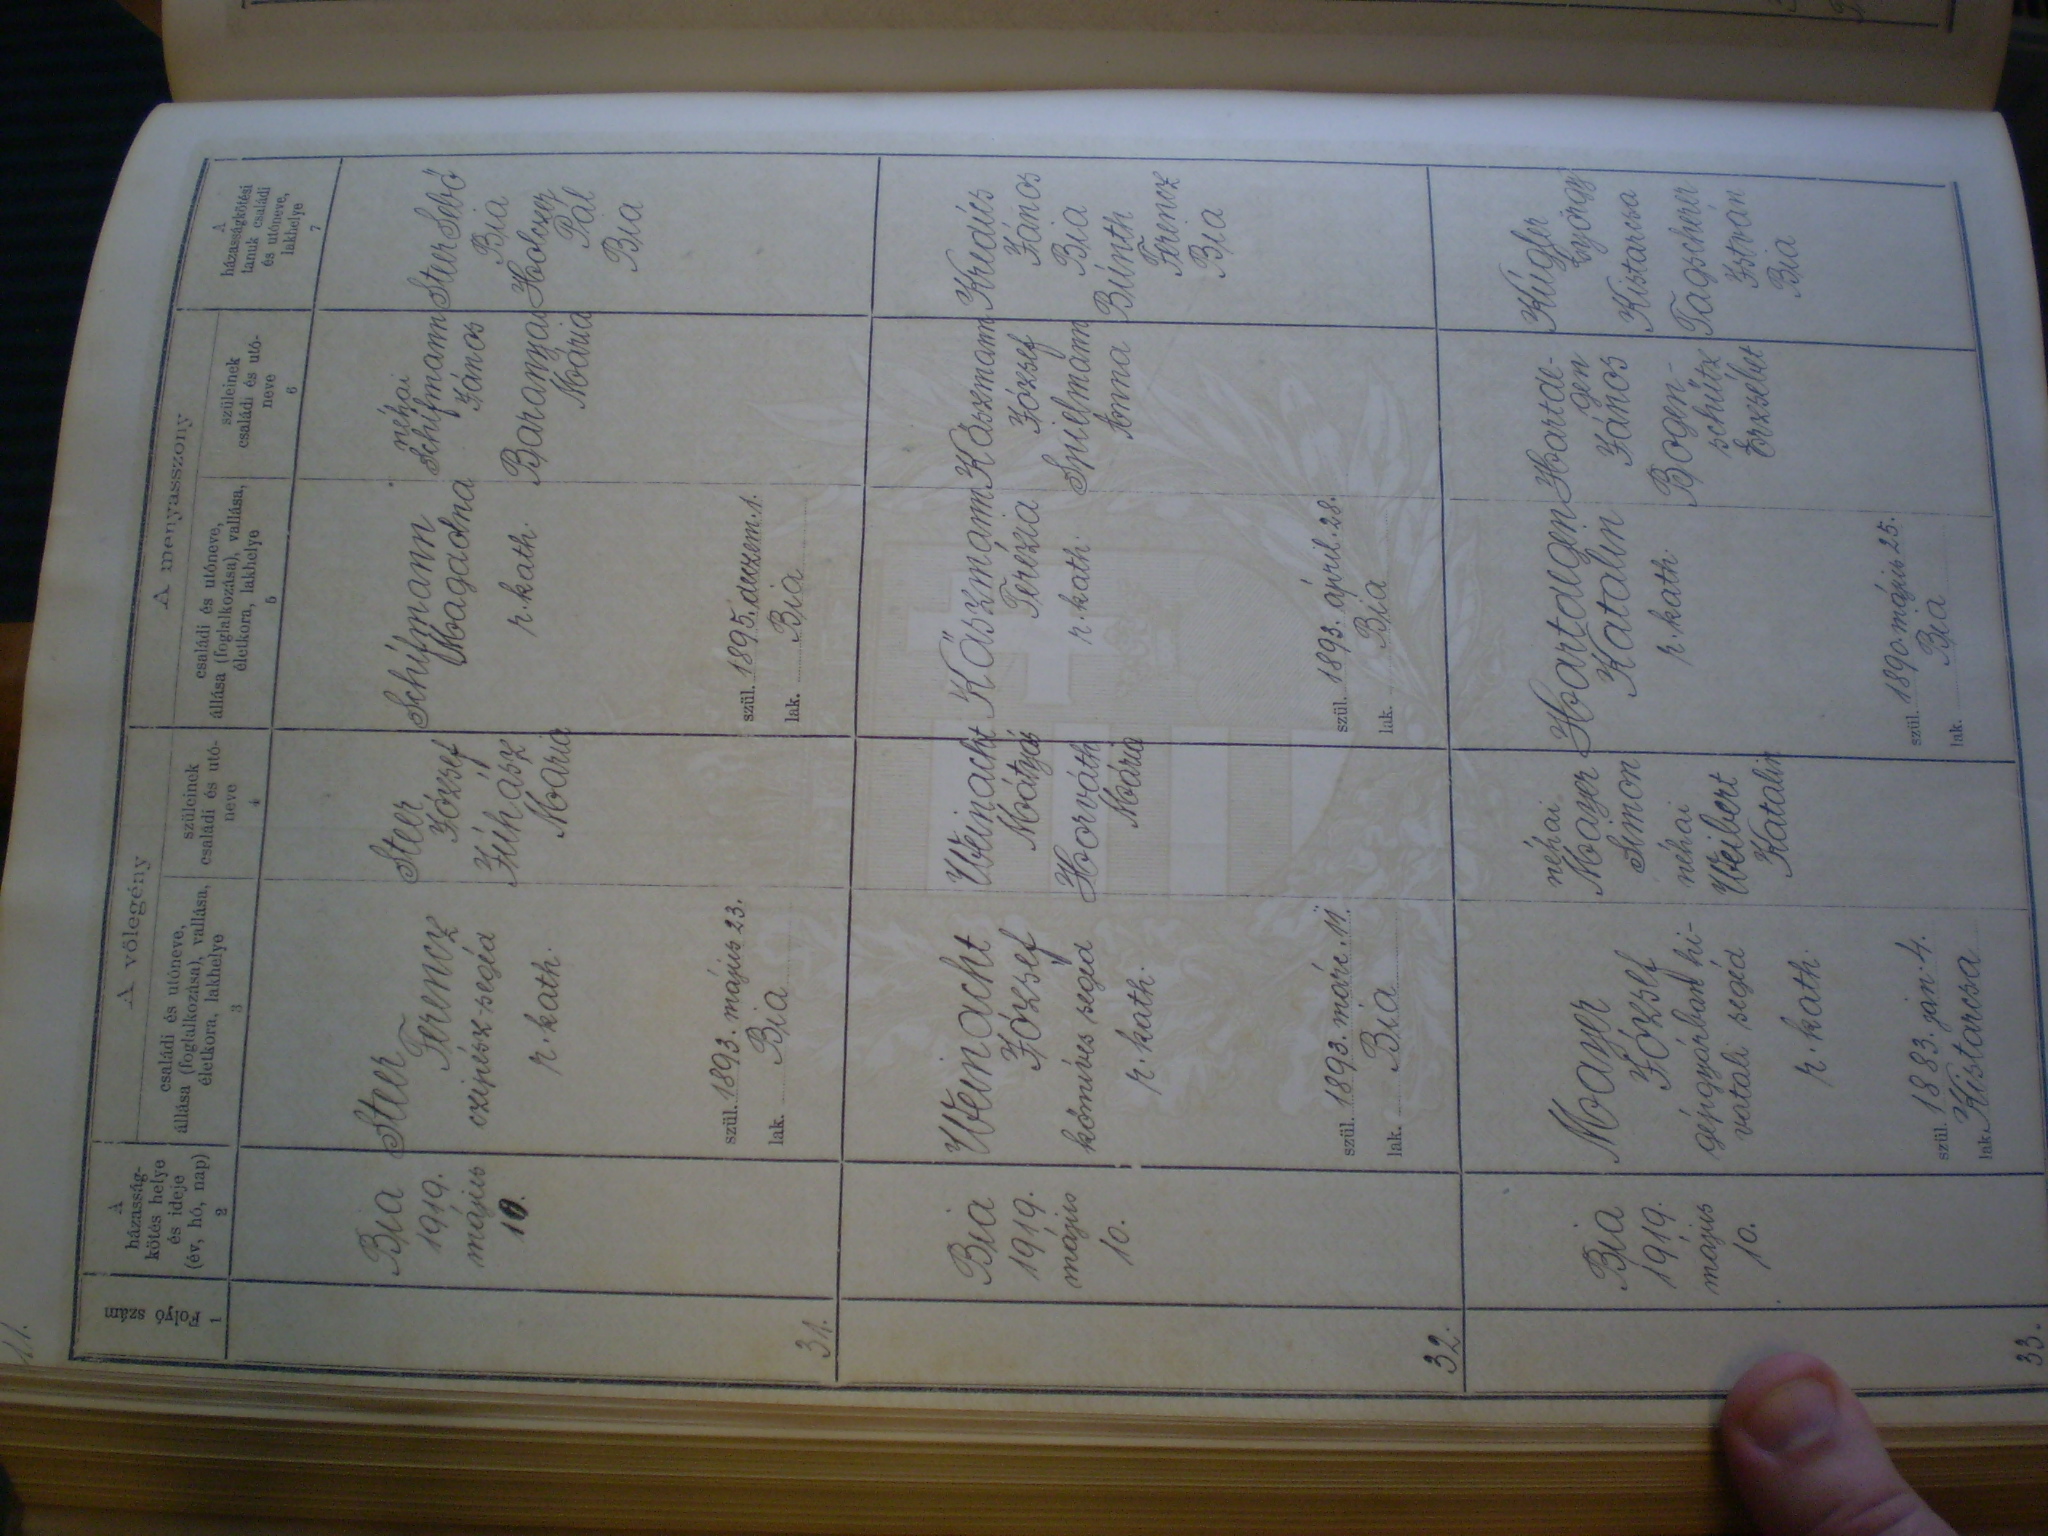 11.
Folyó szám
1
A házasság-
kötés helye
és ideje
(év, hó, nap)
2
A vőlegény
családi és utóneve,
állása (foglalkozása), vallása,
életkora, lakhelye
3
szüleinek
családi és utó-
neve
4
A menyasszony
családi és utóneve,
állása (foglalkozása), vallása,
életkora, lakhelye
5
szüleinek
családi és utó-
neve
6
A
házasságkötési
tanuk családi
és utóneve,
lakhelye
7
31.
Bia
1919.
május
10.
Steer
Ferencz
czipész-segéd
r. kath.
szül. 1893. május 23.
lak. Bia
Steer
József
Juhász
Mária
Schifmann
Magdolna
r. kath.
szül. 1895. deczem. 1.
lak. Bia
néhai
Schifmann
János
Baranyai
Mária
Bia
Holczer
Pál
Bia
32.
Bia
1919.
május
10.
Weinacht
József
kőmíves segéd
r. kath.
szül. 1893. márc. 11.
lak. Bia
Weinacht
Mátyás
Horváth
Mária
Kászmann
Terézia
r. kath.
szül. 1893. április 28.
lak. Bia
Kászmann
József
Spielmann
Anna
János
Bia
Bünth
Ferencz
Bia
33.
Bia
1919.
május
10.
Mayer
József
gépgyárban hi-
vatali segéd
r. kath.
szül. 1883. jan. 4.
lak. Kistarcsa
néhai
Mayer
Simon
néhai
Weibert
Katalin
Hartdegen
Katalin
r. kath.
szül. 1890. május 25.
lak. Bia
Hartde-
gen
János
Bogen-
schütz
Erzsébet
Kügler
György
Kistarcsa
Tagscherer
István
Bia